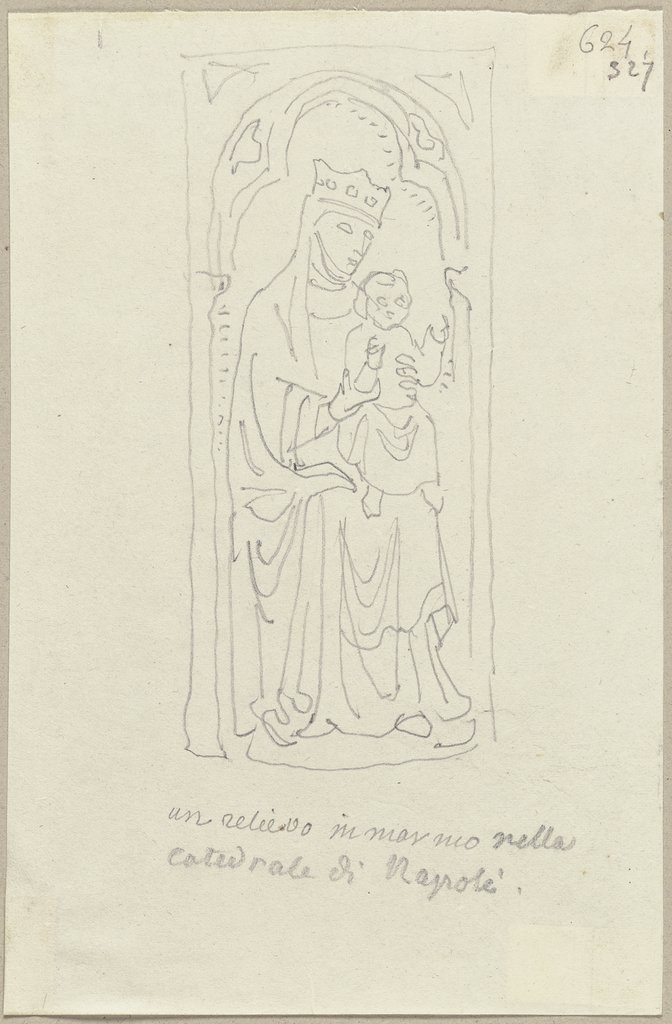 624.
527
un relievo in marmo nella
catedrale di Napoli.